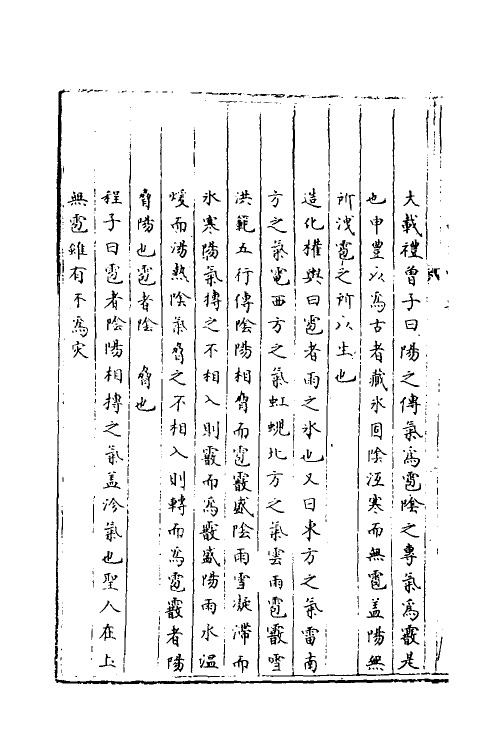 大載禮曾子曰陽之傳氣為雹陰之專氣為霰是
也申豊以為古者藏氷固陰沍寒而無雹盖陽無
所洩雹之所以生也
造化權輿曰雹者雨之氷也又曰東方之氣雷南
方之氣電西方之氣虹蜺北方之氣雲雨雹霰雪
洪範五行傳陰陽相脅而雹霰盛陰雨雪凝滯而
氷寒陽氣摶之不相入則霰而為霰盛陽雨水温
煖而湯熱陰氣脅之不相入則轉而為雹霰者陽
脅陽也雹者陰 脅也
程子曰雹者陰陽相摶之氣盖沴氣也聖人在上
無雹雖有不為灾